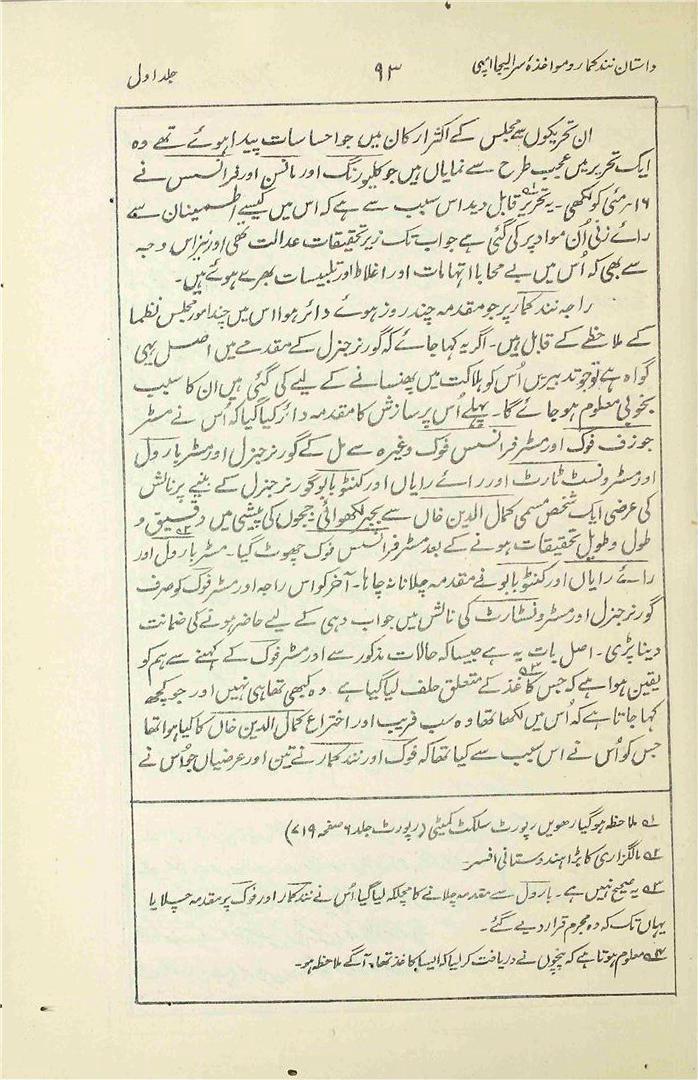 داستان نند کمار و مواخذۂ سر الیجا امپی
۹۳
جلد اول
ان تحریکوں سے مجلس کے اکثر ارکان میں جو احساسات پیدا ہوئے تھے وہ
ایک تحریر میں عجیب طرح سے نمایاں ہیں جو کلیورنگ اور مانسن اور فرانسس نے
۱۶؍ مئی کو لکھی۔ یہ تحریر ۱؎ قابل دید اس سبب سے ہے کہ اس میں کیسے اطمینان سے
رائے زنی اُن مواد پر کی گئی ہے جو اب تک زیر تحقیقات عدالت تھی اور نیز اس وجہ
سے بھی کہ اُس میں بے محابا اتہامات اور اغلاط اور تلبیسات بھرے ہوئے ہیں۔
راجہ نند کمار پر جو مقدمہ چند روز ہوئے دائر ہوا اس میں چند امور مجلس نظما
کے ملاحظے کے قابل ہیں۔ اگر یہ کہا جائے کہ گورنر جنرل کے مقدمے میں اصل یہی
گواہ ہے تو جو تدبیریں اُس کو ہلاکت میں پھنسانے کے لیے کی گئی ہیں ان کا سبب
بخوبی معلوم ہو جائے گا۔ پہلے اُس پر سازش کا مقدمہ دائر کیا گیا کہ اُس نے مسٹر
جوزف فوک اور مسٹر فرانسس فوک وغیرہ سے مل کے گورنر جنرل اور مسٹر بارول
اور مسٹر ونسٹ ٹارٹ اور رائے ۲؎ رایاں اور کنٹو بابو گورنر جنرل کے بنیے پر نالش
کی عرضی ایک شخص مسمی کمال الدین خاں سے بجبر لکھوائی۔ ججوں کی پیشی میں دقیق و
طول و طویل تحقیقات ہونے کے بعد مسٹر فرانسس فوک چھوٹ گیا۔ مسٹر بارول ۳؎ اور
رائے رایاں اور کنٹو بابو نے مقدمہ چلانا نہ چاہا۔ آخر کو اس راجہ اور مسٹر فوک کو صرف
گورنر جنرل اور مسٹر ونسٹارٹ کی نالش میں جواب دہی کے لیے حاضر ہونے کی ضمانت
دینا پڑی۔ اصل بات یہ ہے جیسا کہ حالات مذکور سے اور مسٹر فوک کے کہنے سے ہم کو
یقین ہوا ہے کہ جس کاغذ ۴؎ کے متعلق حلف لیا گیا ہے وہ کبھی تھا ہی نہیں اور جو کچھ
کہا جاتا ہے کہ اُس میں لکھا تھا وہ سب فریب اور اختراع کمال الدین خاں کا کیا ہوا تھا
جس کو اُس نے اس سبب سے کیا تھا کہ فوک اور نند کمار نے تین اور عرضیاں جو اُس نے
۱؎ ملاحظہ ہو گیارھویں رپورٹ سلکٹ کمیٹی (رپورٹ جلد ۶ صفحہ ۷۱۹)
۲؎ مالگزاری کا بڑا ہندوستانی افسر۔
۳؎ یہ صحیح نہیں ہے۔ بارول سے مقدمہ چلانے کا مچلکہ لیا گیا، اُس نے نند کمار اور فوک پر مقدمہ چلایا
یہاں تک کہ وہ مجرم قرار دیے گئے۔
۴؎ معلوم ہوتا ہے کہ ججوں نے دریافت کر لیا کہ ایسا کاغذ تھا، آگے ملاحظہ ہو۔